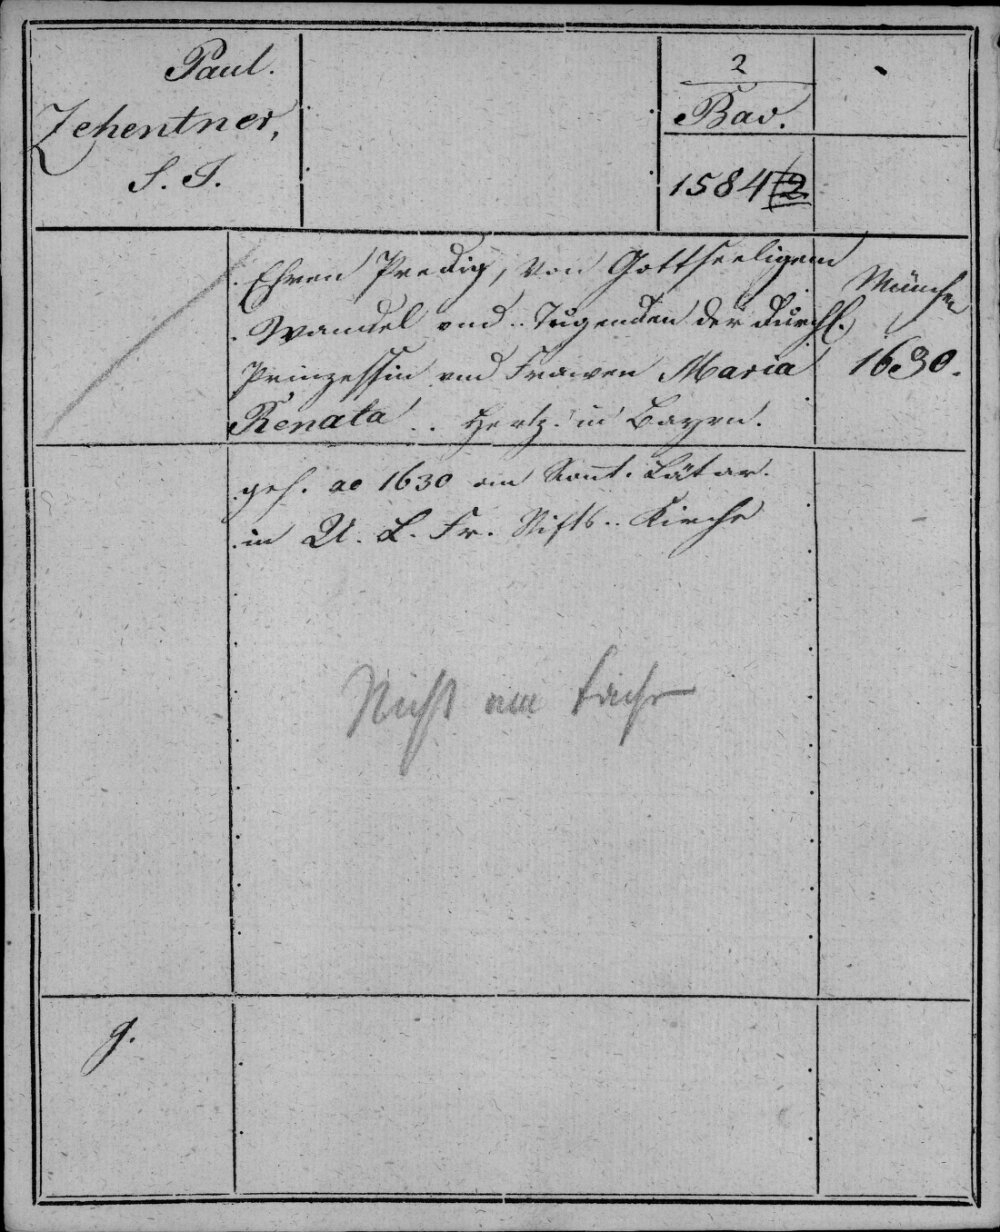 Paul.
Zehentner,
S. J.
2
Bav.
1584
Ehren Predig, von Gottseeligem
Wandel vnd .. Tugenden der Durchl.
Prinzessin vnd Frawen Maria
Renata .. Hertz. in Bayrn.
München
1630.
geh. ao 1630 am Sont. Lätar.
in U. L. Fr. Stifts .. Kirche
Nicht am Fache
g.